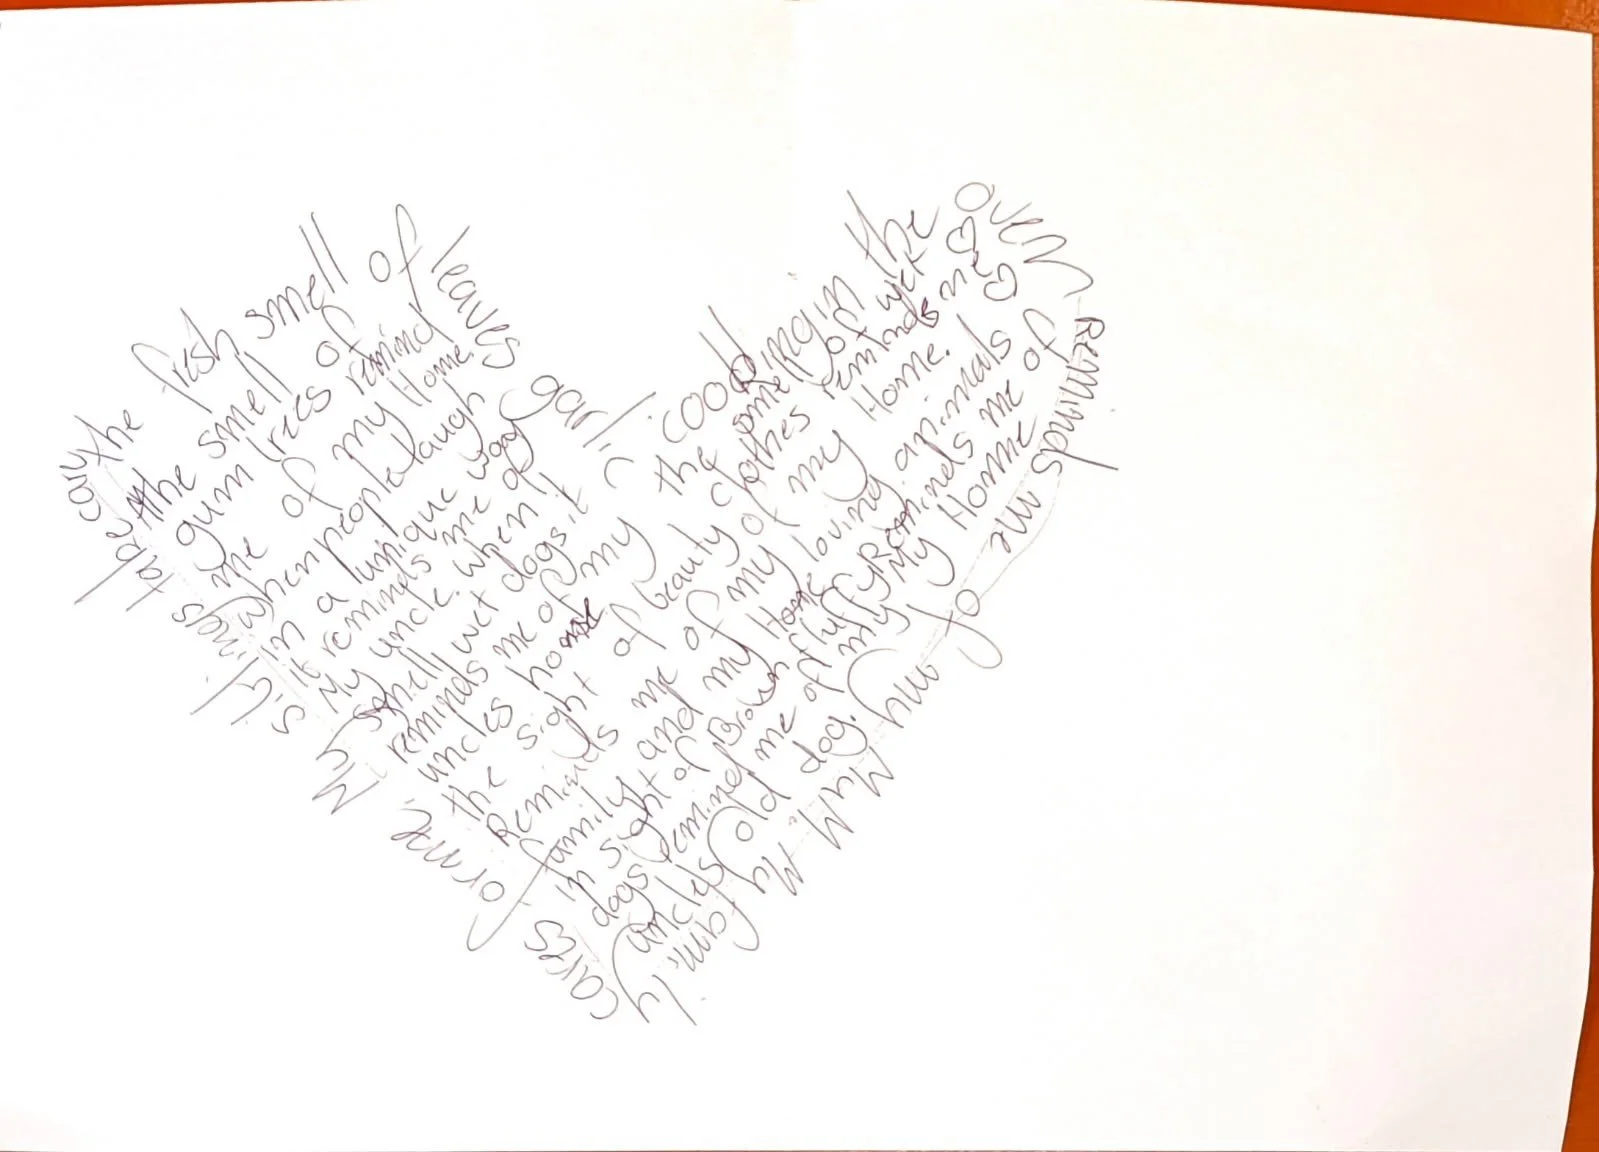 the fresh smell of leaves garlic cooking in the oven Reminds me of my Mum. My family cares
My siblings take care
or me.
the smell of
gum trees remind
me of my Home.
when people laugh
in a unique way
it reminds me of
My uncle. when I
smell wet dogs it
reminds me of my
uncles home
the sight of beauty
Reminds me of my
family and my Home
in sight of Brown fluffy
dogs remind me of my
uncles old dog.
the smell of wet
clothes reminds me
of my Home.
of my loving animals
Reminds me of
My Home